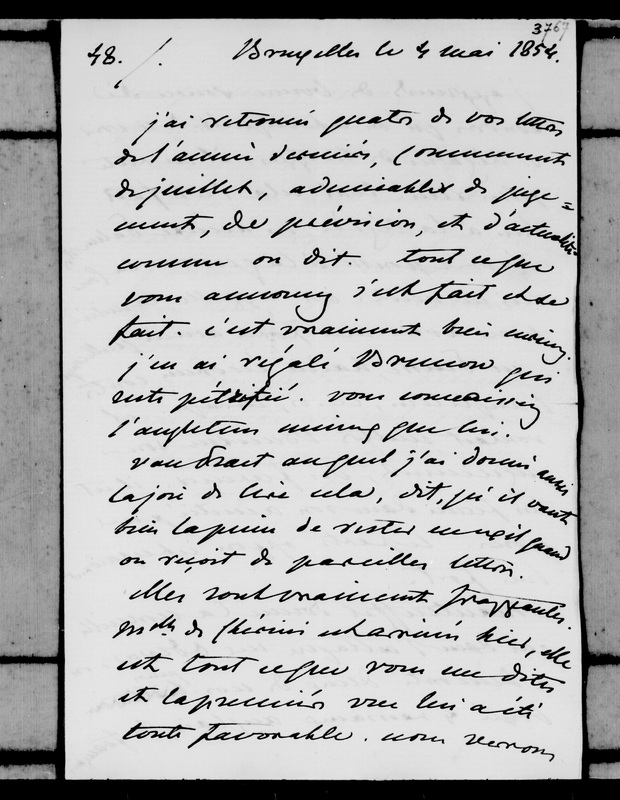 3767
48. /. Bruxelles le 4 mai 1854.
j'ai retrouvé quatre de vos lettres
de l'année dernière, Commencement
de juillet, admirables de juge=
ment, de prévision, et d'actualité
comme on dit. tout ce que
vous annonciez s'est fait et se
fait. c'est vraiment bien
j'en ai régalé Brunon qui
reste pétrifié. vous connaissiez
l'angleterre mieux que lui.
vaudrait auquel j'ai donné aussi
la joie de lire cela, dit, qu'il vaut
bien la peine de rester en exil quand
on reçoit de pareilles lettres.
elles sont vraiment frappantes.
Mde de est arrivée hier, elle
est tout ce que vous me dites
et la première vue lui a été
toute favorable. nous verrons